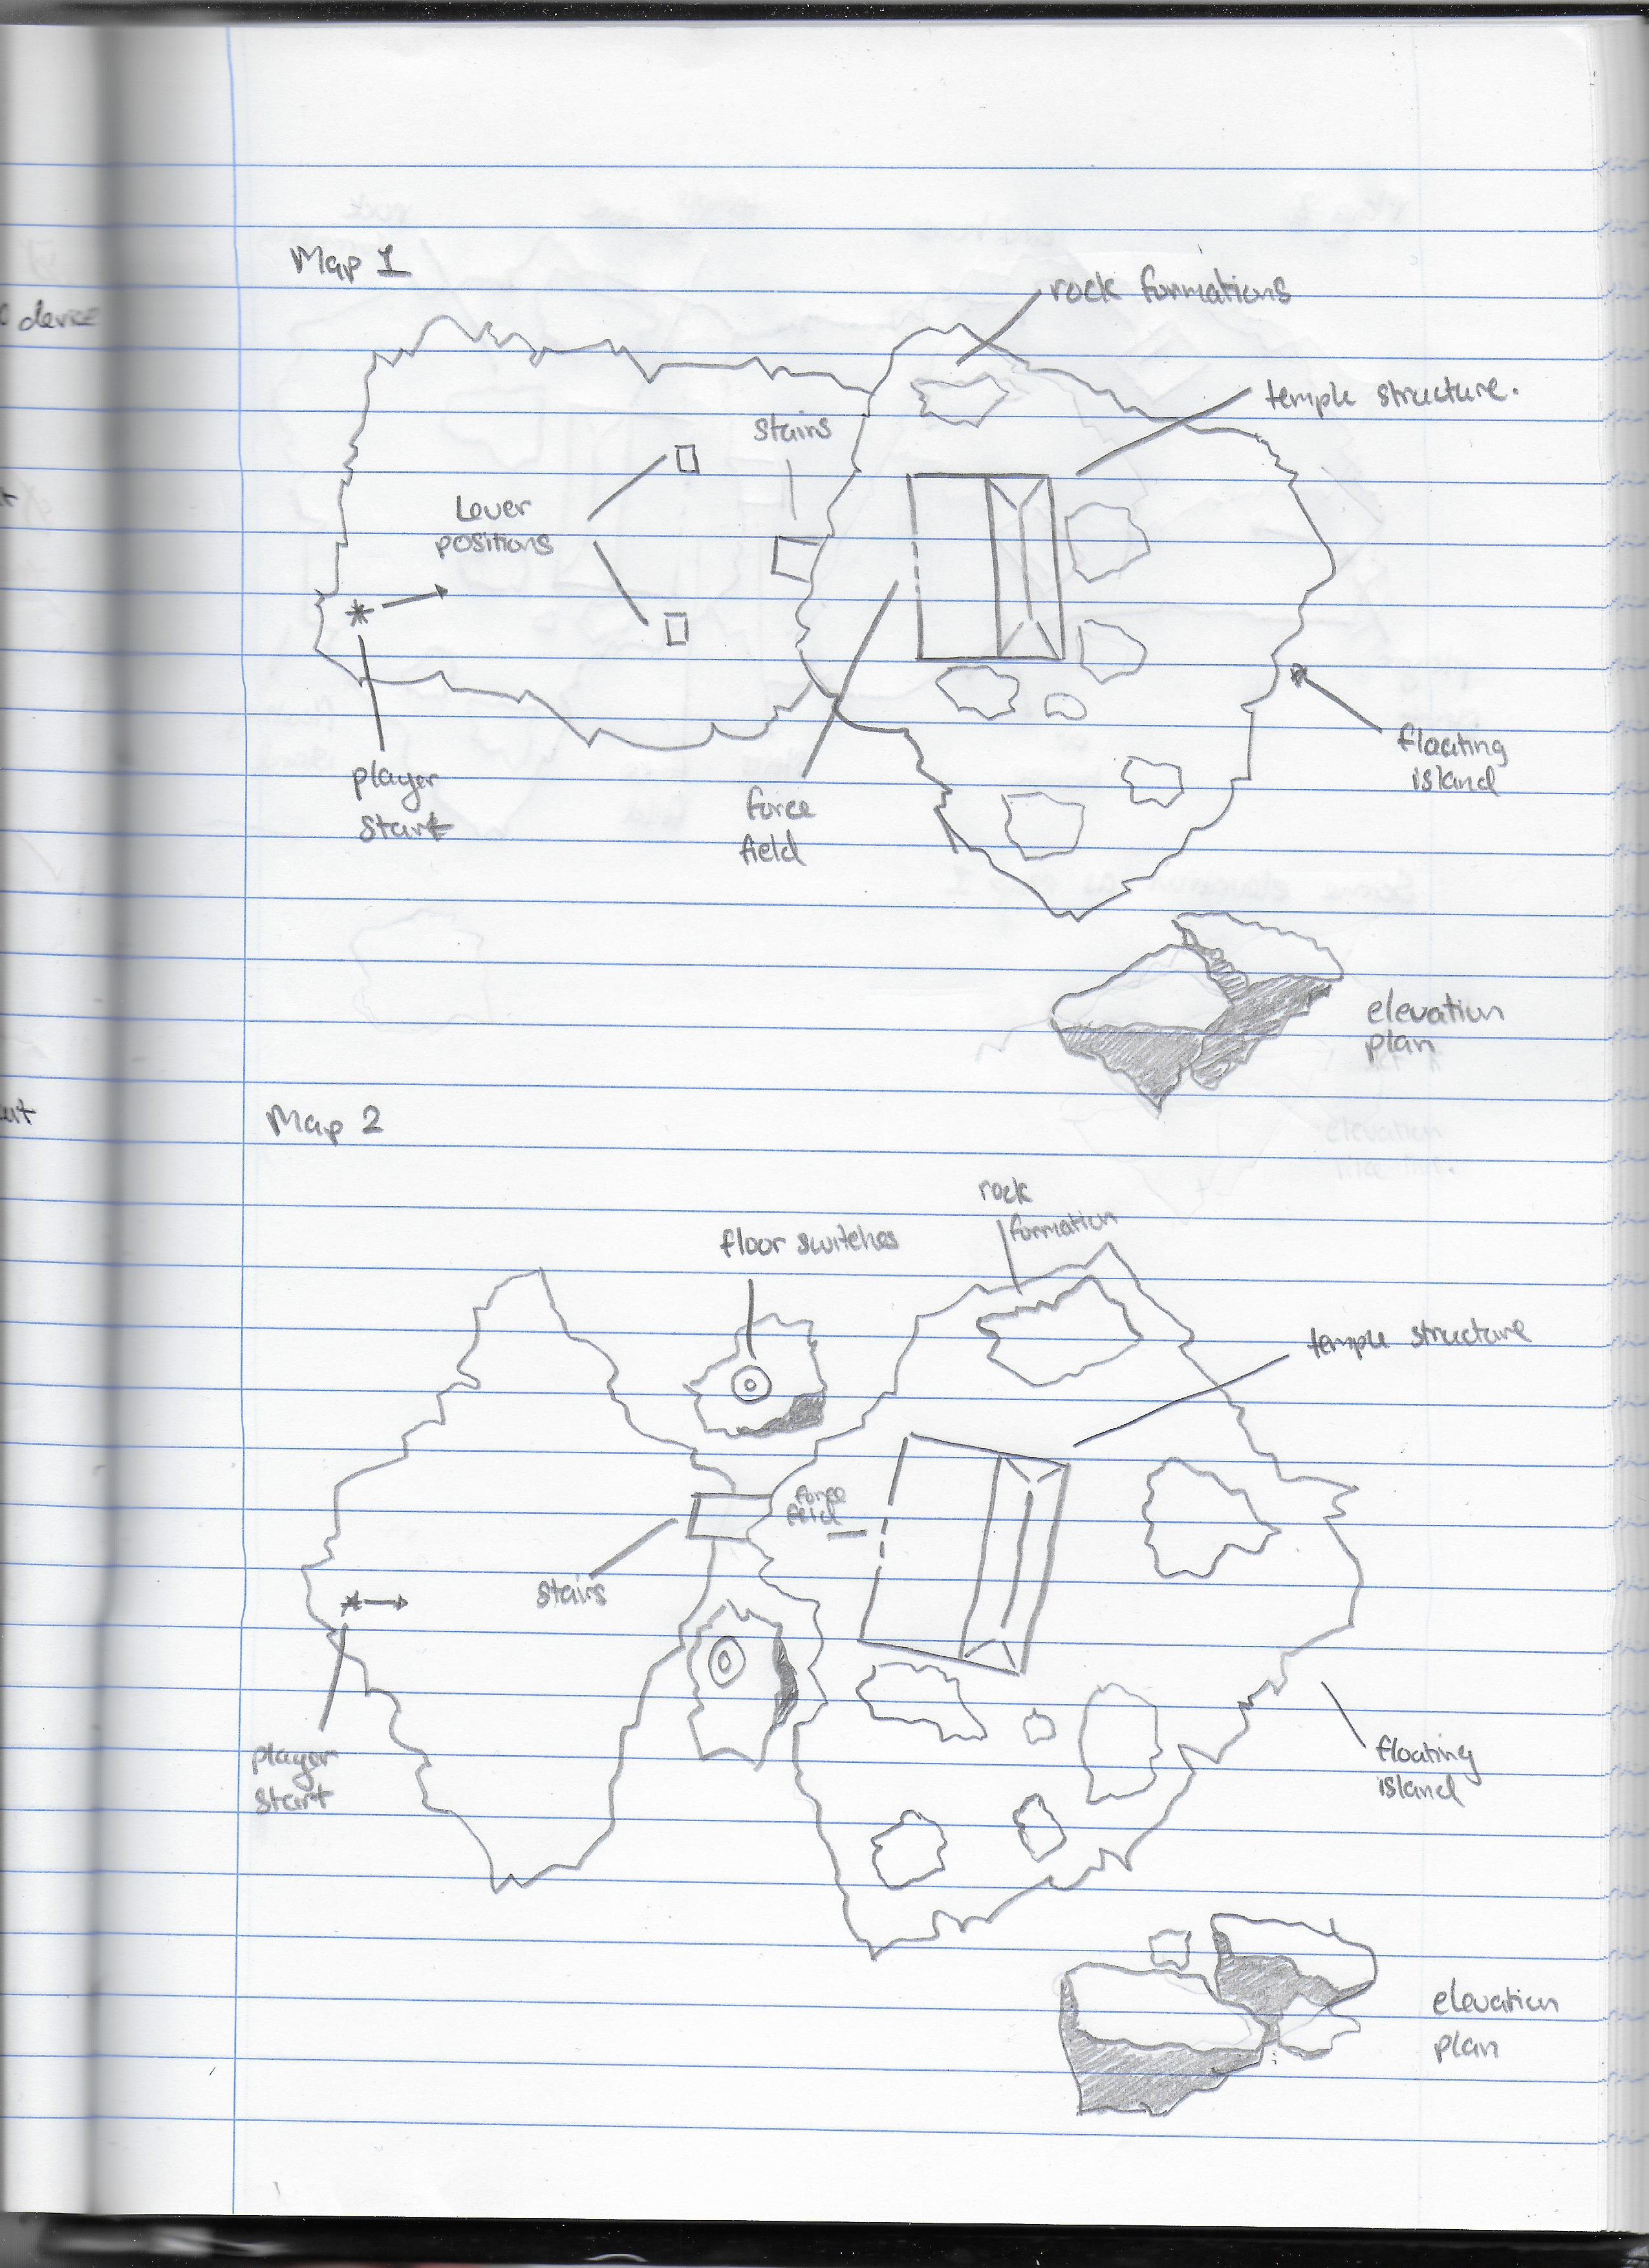 device
Map 1
rock formations
temple structure.
stairs
Lever
positions
player
start
force
field
floating
island
elevation
plan
Map 2
rock
formation
floor switches
temple structure
force
field
stairs
player
start
floating
island
elevation
plan